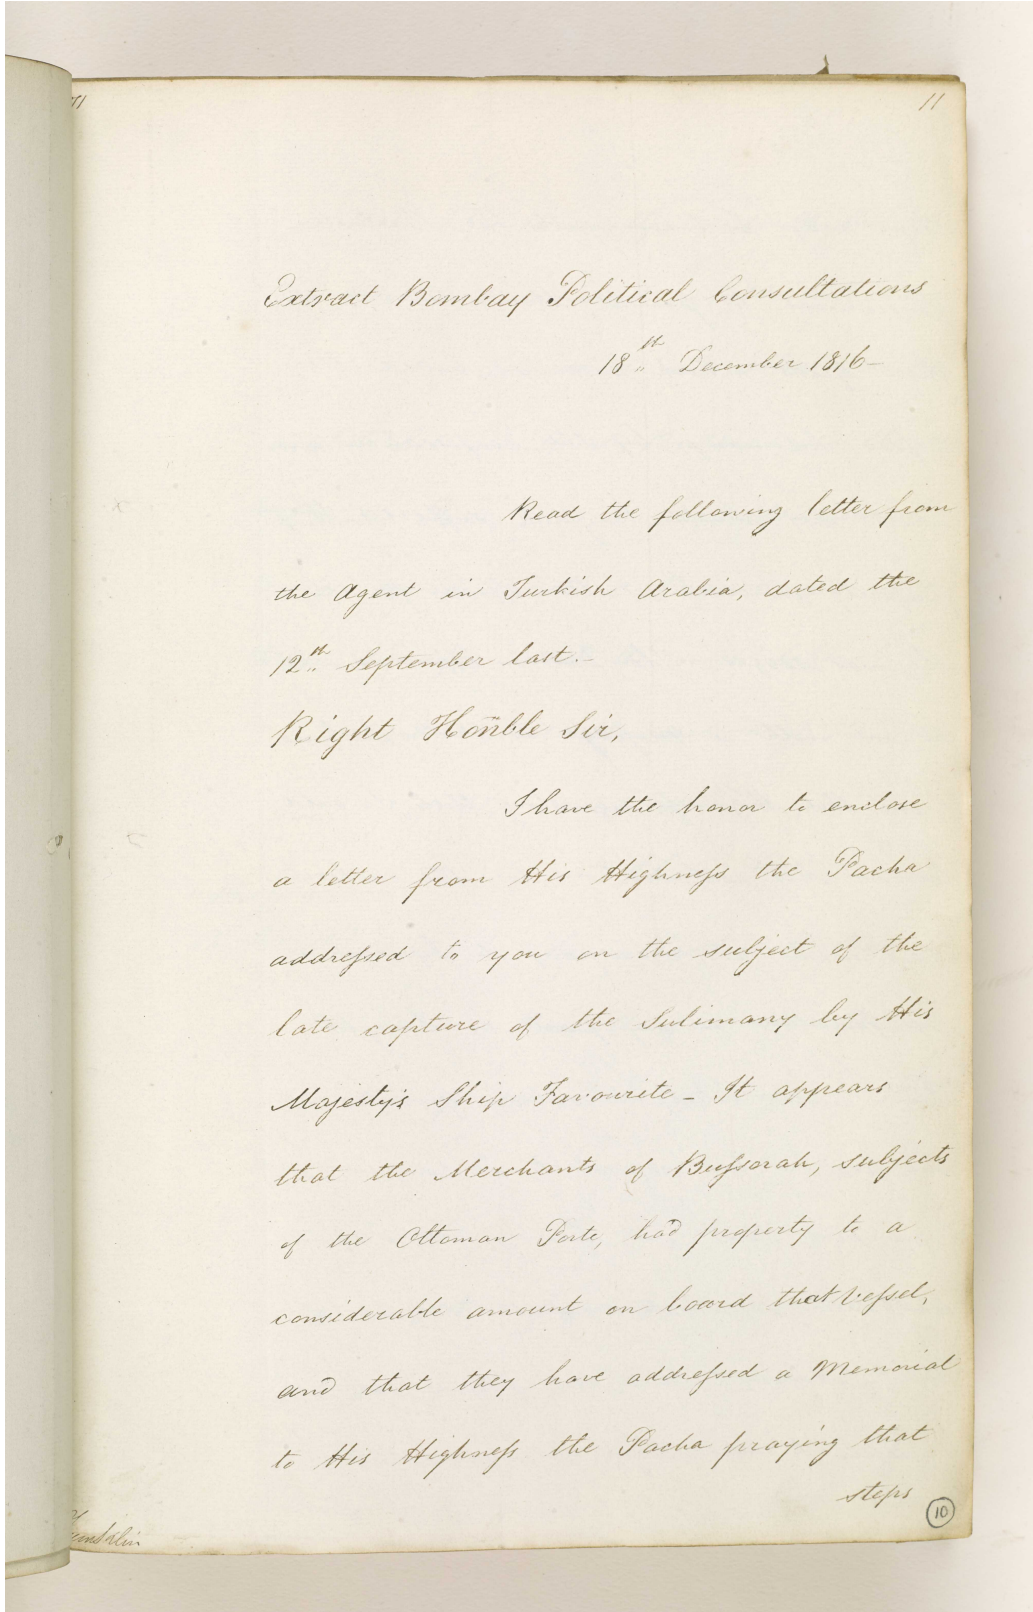 11
Extract Bombay Political Consultations
18th December 1816 -
Read the following letter from
the Agent in Turkish Arabia, dated the
12th September last. -
Right Hon̄ble Sir,
I have the honor to enclose
a letter from His Highneſs the Pacha
addreſsed to you on the subject of the
late capture of the Sulimany by His
Majesty's Ship Favourite - It appears
that the Merchants of Buſsorah, subjects
of the Ottoman Porte, had property to a
considerable amount on board that veſsel,
and that they have addreſsed a Memorial
to His Highneſs the Pacha praying that
steps
10